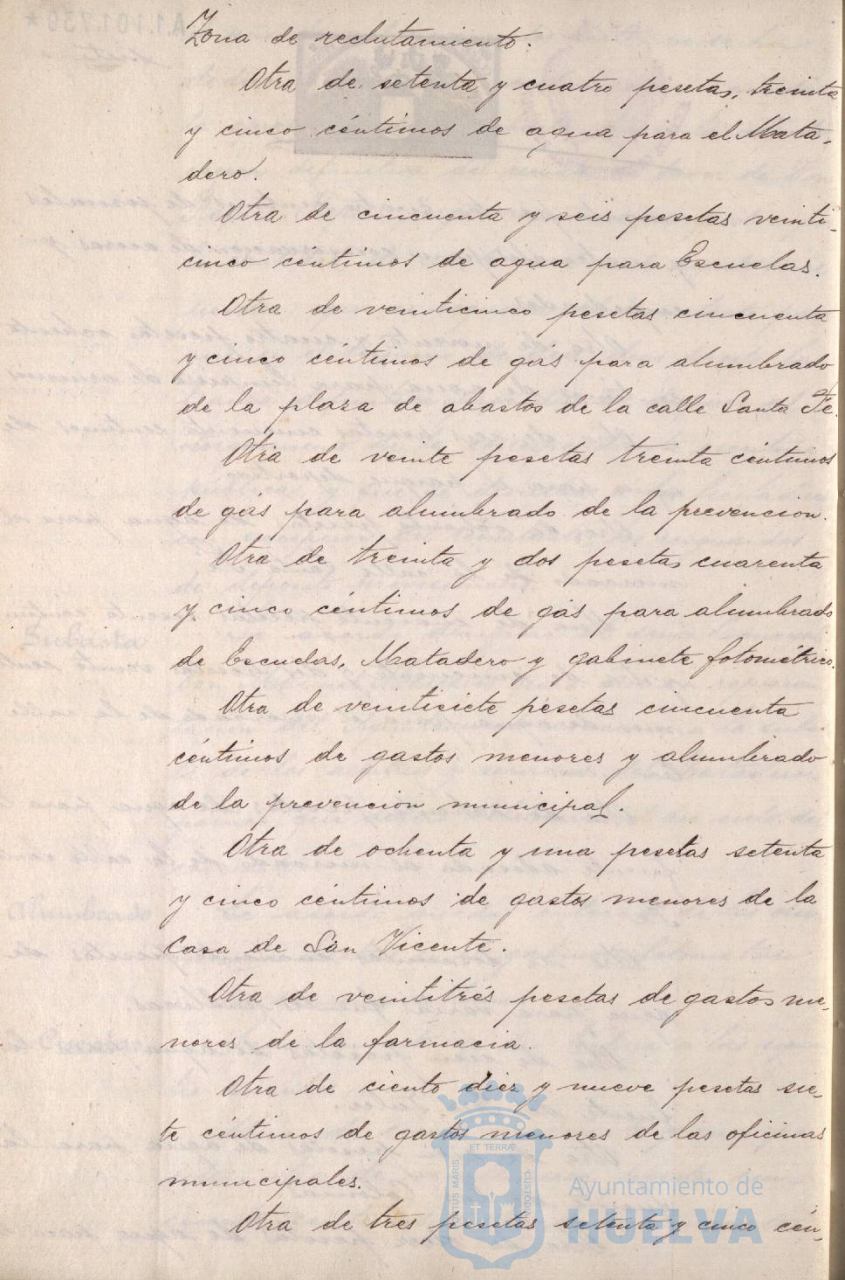 Zona de reclutamiento.
Otra de setenta y cuatro pesetas, treinta
y cinco céntimos de agua para el Mata-
dero.
Otra de cincuenta y seis pesetas veinti-
cinco céntimos de agua para Escuelas.
Otra de veinticinco pesetas cincuenta
y cinco céntimos de gás para alumbrado
de la plaza de abastos de la calle Santa Fé.
Otra de veinte pesetas treinta céntimos
de gás para alumbrado de la prevencion.
Otra de treinta y dos pesetas cuarenta
y cinco céntimos de gás para alumbrado
de Escuelas, Matadero y gabinete fotométrico.
Otra de veintisiete pesetas cincuenta
céntimos de gastos menores y alumbrado
de la prevencion municipal.
Otra de ochenta y una pesetas setenta
y cinco céntimos de gastos menores de la
Casa de San Vicente.
Otra de veintitrés pesetas de gastos me-
nores de la farmacia.
Otra de ciento diez y nueve pesetas sie-
te céntimos de gastos menores de las oficinas
municipales.
Otra de tres pesetas setenta y cinco cén-
ET TERRÆ
PORTUS MARIS
CUSTODIA
Ayuntamiento de
HUELVA